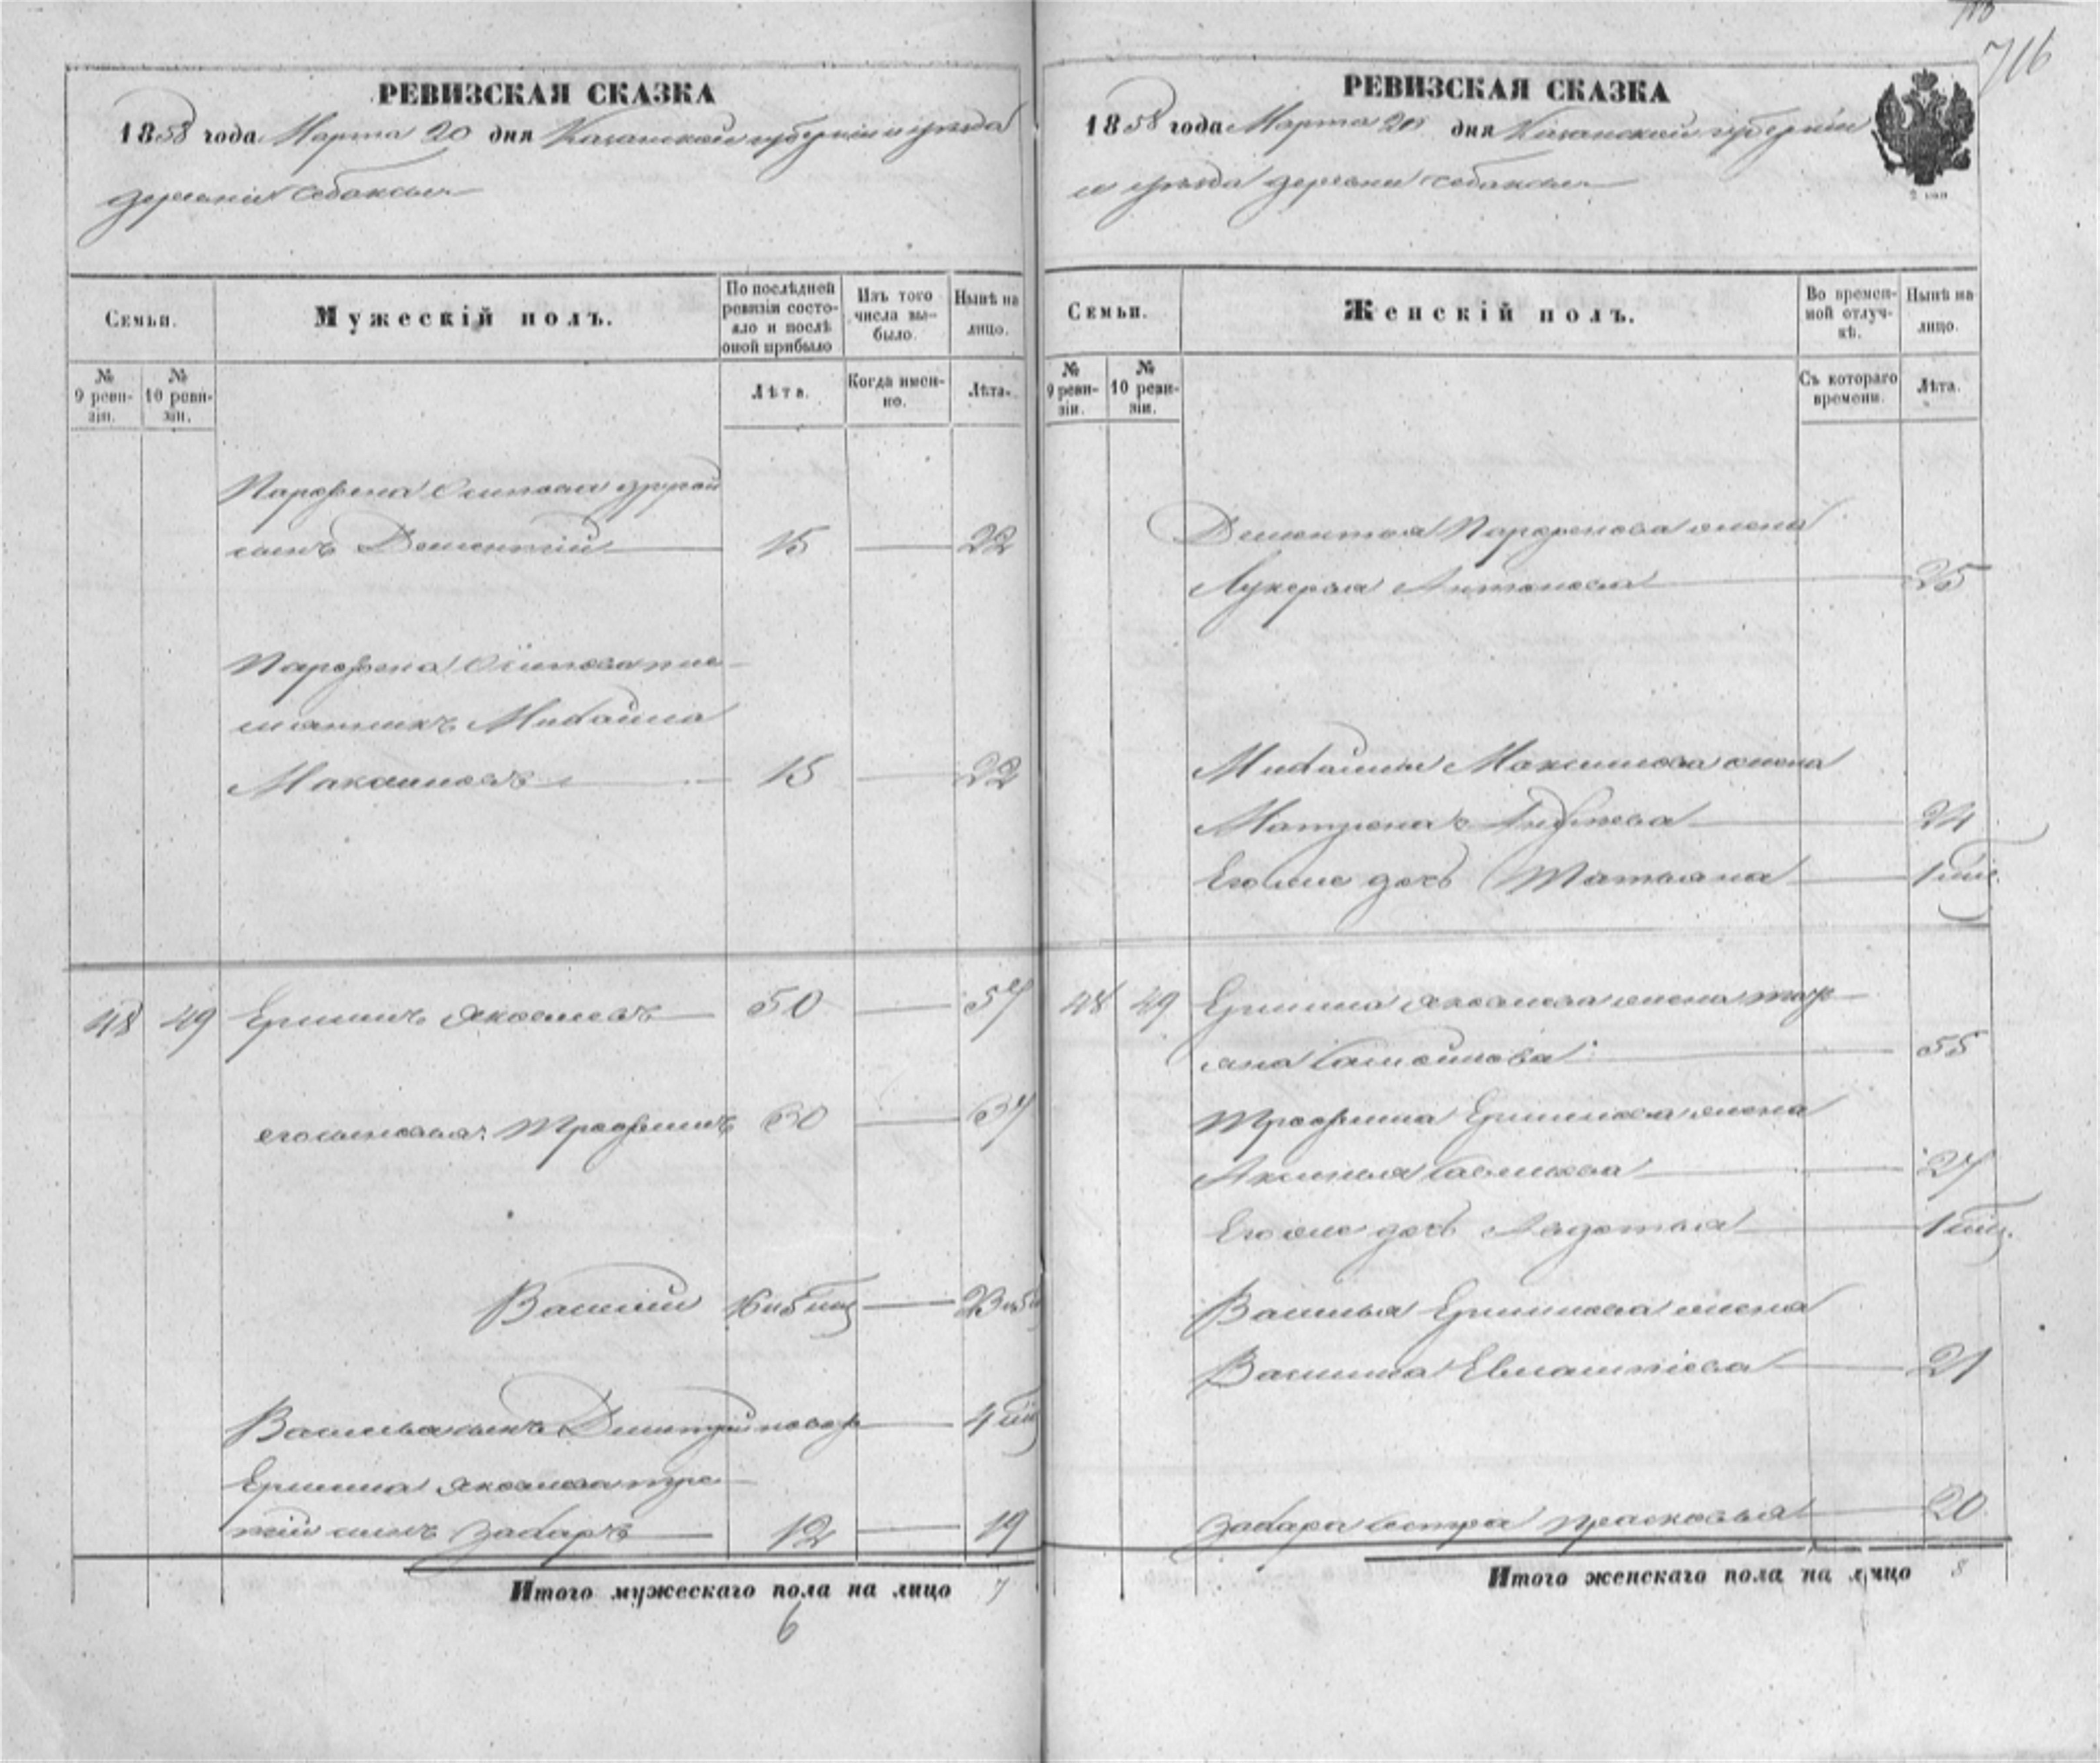 РЕВИЗСКАЯ СКАЗКА
1858 года Марта 20 дня Казанской губерніи и уѣзда
деревни
Семьи.
Мужескій полъ.
По послѣдней ревизіи состояло и послѣ оной прибыло
Изъ того числа выбыло.
Нынѣ на лицо.
№ 9 ревизіи.
№ 10 ревизіи.
Лѣта.
Когда именно.
Лѣта.
Парфена Осипова другой
сынъ Дементій 15 22
Парфена Осипова пле-
мянникъ Михайла
Максимовъ 15 22
48 49 Ермилъ Яковлевъ 50 57
его сыновья: Трофимъ 30 37
Василій 16 и 6 мѣц 23 и 6
Васильева сынъ Дмитрій новор 4 мѣц
Ермила Яковлева тре-
тій сынъ Захаръ 12 19
Итого мужескаго пола на лицо 7
6
716
РЕВИЗСКАЯ СКАЗКА
1858 года Марта 20 дня Казанской губерніи
и уѣзда деревни
2 коп
Семьи.
Женскій полъ.
Во временной отлучкѣ.
Нынѣ на лицо.
№ 9 ревизіи.
№ 10 ревизіи.
Съ котораго времени.
Лѣта.
Дементья Парфенова жена
Лукерья Антонова 25
Михайлы Максимова жена
Матрена 24
Его же дочь Татьяна 1 мѣс.
48 49 Ермила Яковлева жена
Самойлова 55
Трофима Ермилова жена
Аксинья Савельева 27
Его же дочь Авдотья 1 мѣц.
Василья Ермилова жена
Василиса 21
Захара сестра Прасковья 20
Итого женскаго пола на лицо 8